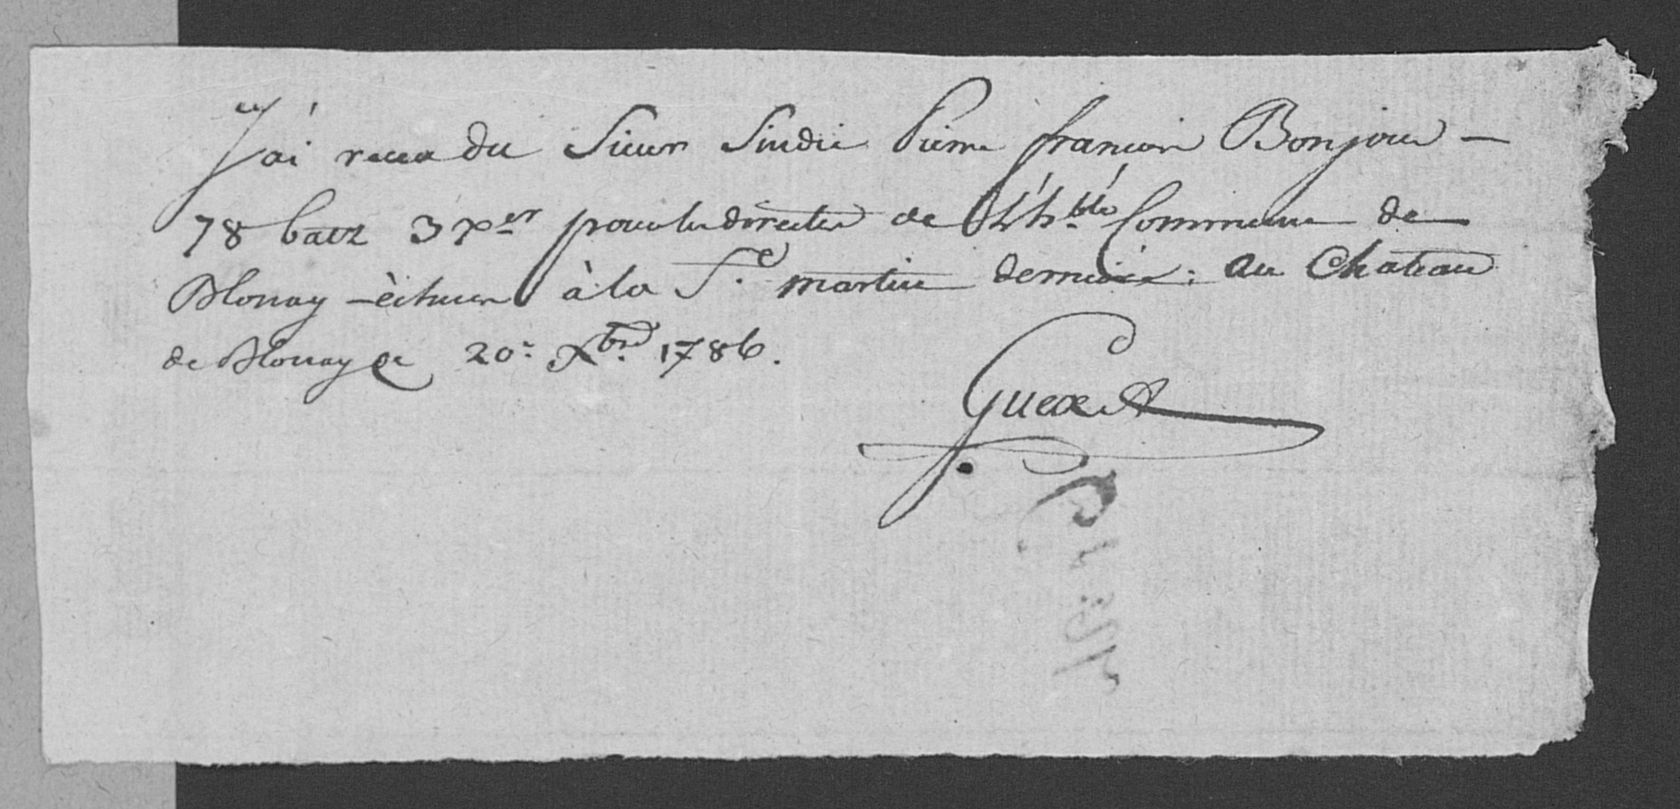 J'ai receu du Sieur Sindic Pierre françois Bonjour —
78 batz 3 Xer pour les directes de L'hble Commune de
Blonay — êchues à la St. martin derniére: au Chateau
de Blonay ce 20e Xbre 1786.
Guex